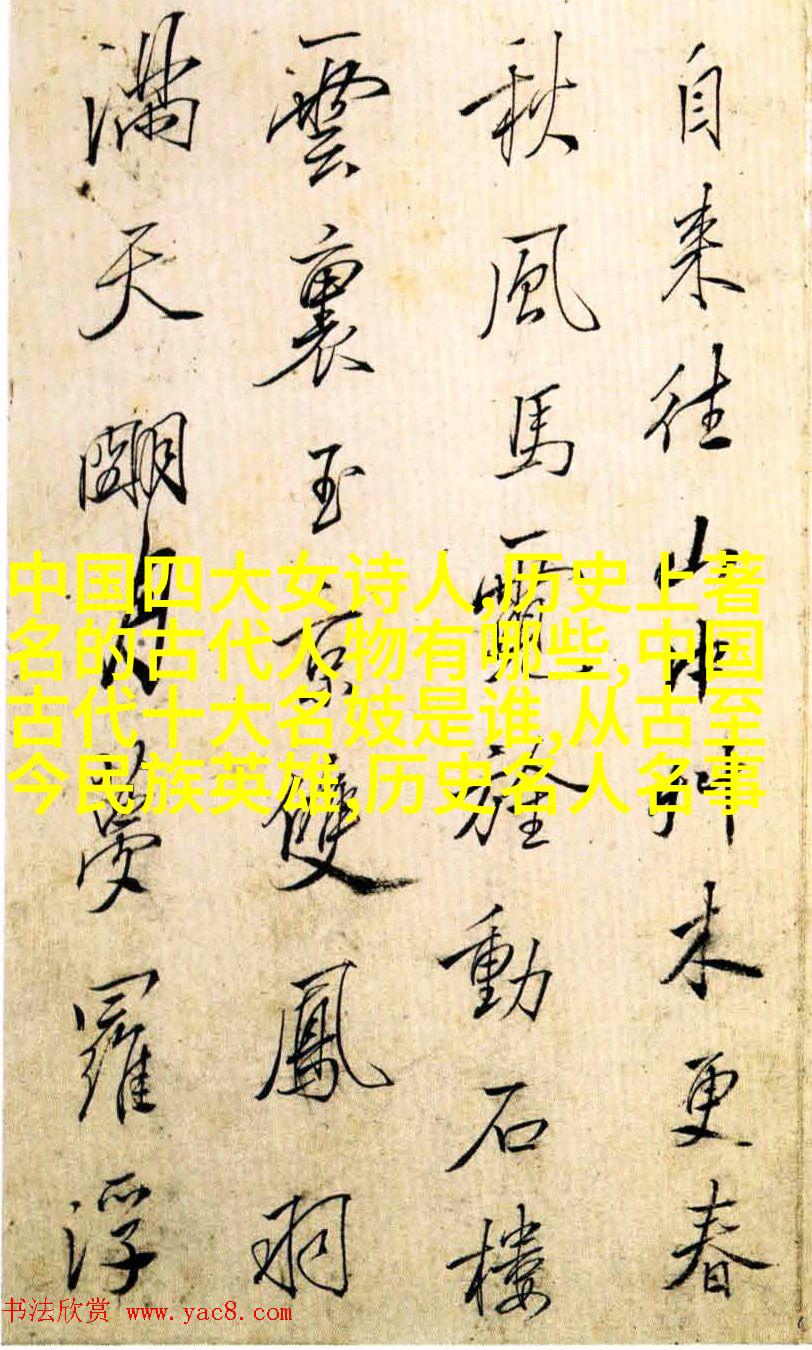 自来往山中艸未更春
秋風馬旌動石樓
雲裏玉京雙鳳羽
滿天月夢羅浮
中国四大女诗人,历史上著
名的古代人物有哪些,中国
古代十大名妓是谁,从古至
今民族英雄,历史名人名事
书法欣赏 www.yac8.com